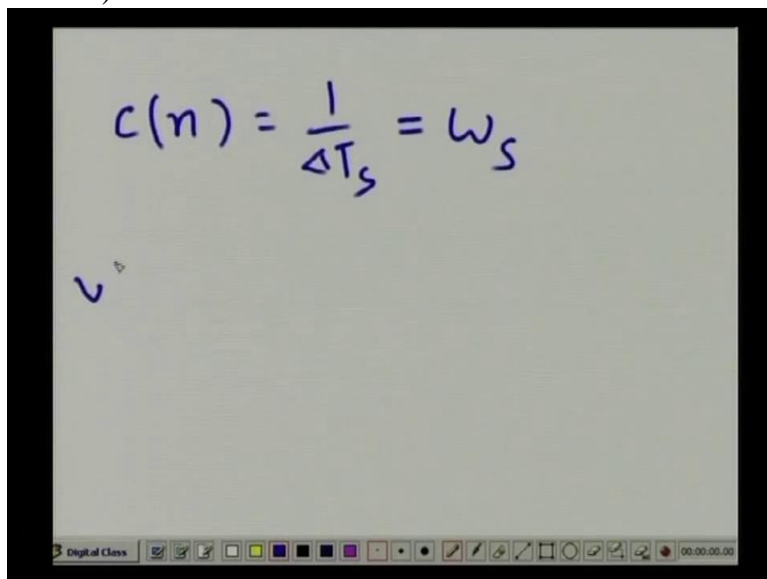 c(n) = 1/ΔT_s = ω_s
v
Digital Class 00:00:00.00